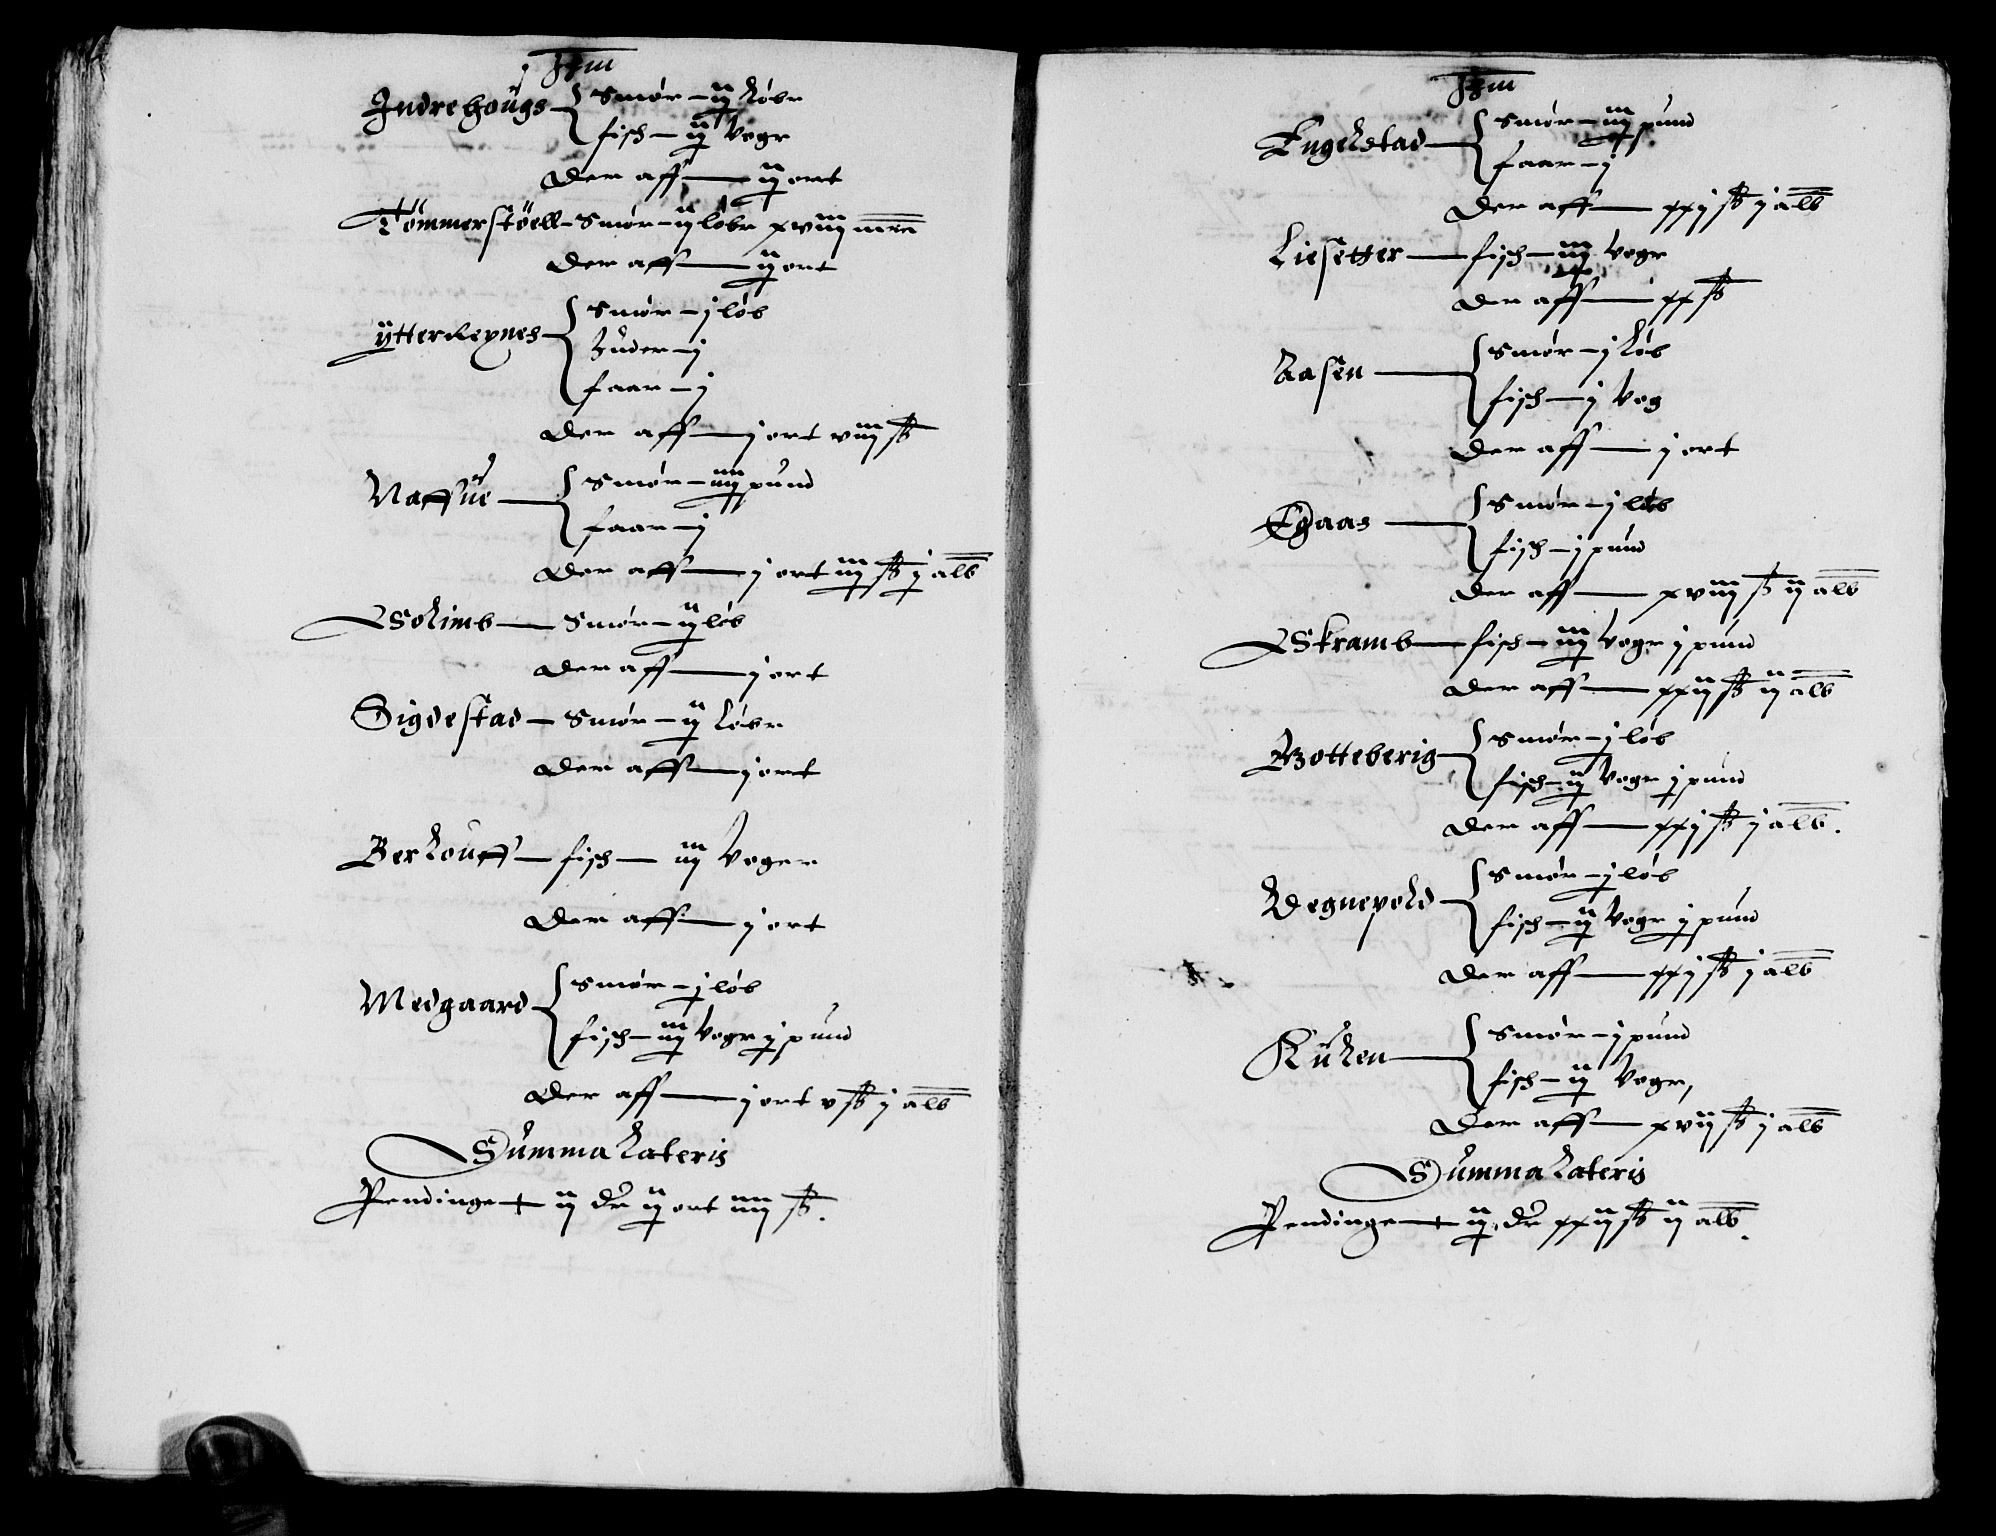 Jtem
Indrehougs
Smør – ij løbr
fisch – ij Vogr
Der aff – ij ort
Tømmerstøell – Smør – ij løbr xviij mrc
Der aff – ij ort
ÿtterReÿnes
Smør – j løb
huder – j
faar – j
Der aff – j ort viij ß
Naffue
Smør – iiij pund
faar – j
Der aff – j ort iij ß j alb
Solimb – Smør – ij løb
Der aff – j ort
Sigdestad – Smør – ij løbr
Der aff – j ort
Berkouff – fisch – iij Voger
Der aff – j ort
Medgaard
Smør – j løb
fisch – iij Vogr j pund
Der aff – j ort v ß j alb
Summa Lateris
Pendinge – ij dr ij ort iiij ß.
Jtem
Engelstad
Smør – iij pund
faar – j
Der aff – xxj ß j alb
Liesetter – fisch – iij Vogr
Der aff – xx ß
Aasen
Smør – j løb
fisch – j Vog
Der aff – j ort
Egaas
Smør – j løb
fisch – j pund
Der aff – xviij ß ij alb
Skramb – fisch – iij Vogr j pund
Der aff – xxij ß ij alb
Botteberig
Smør – j løb
fisch – ij Vogr j pund
Der aff – xxj ß j alb.
Degnepold
Smør – j løb
fisch – ij Vogr j pund
Der aff – xxj ß j alb
Kuken
Smør – j pund
fisch – ij Vogr,
Der aff – xvij ß j alb
Summa Lateris
Pendinge – ij dr xxij ß ij alb.